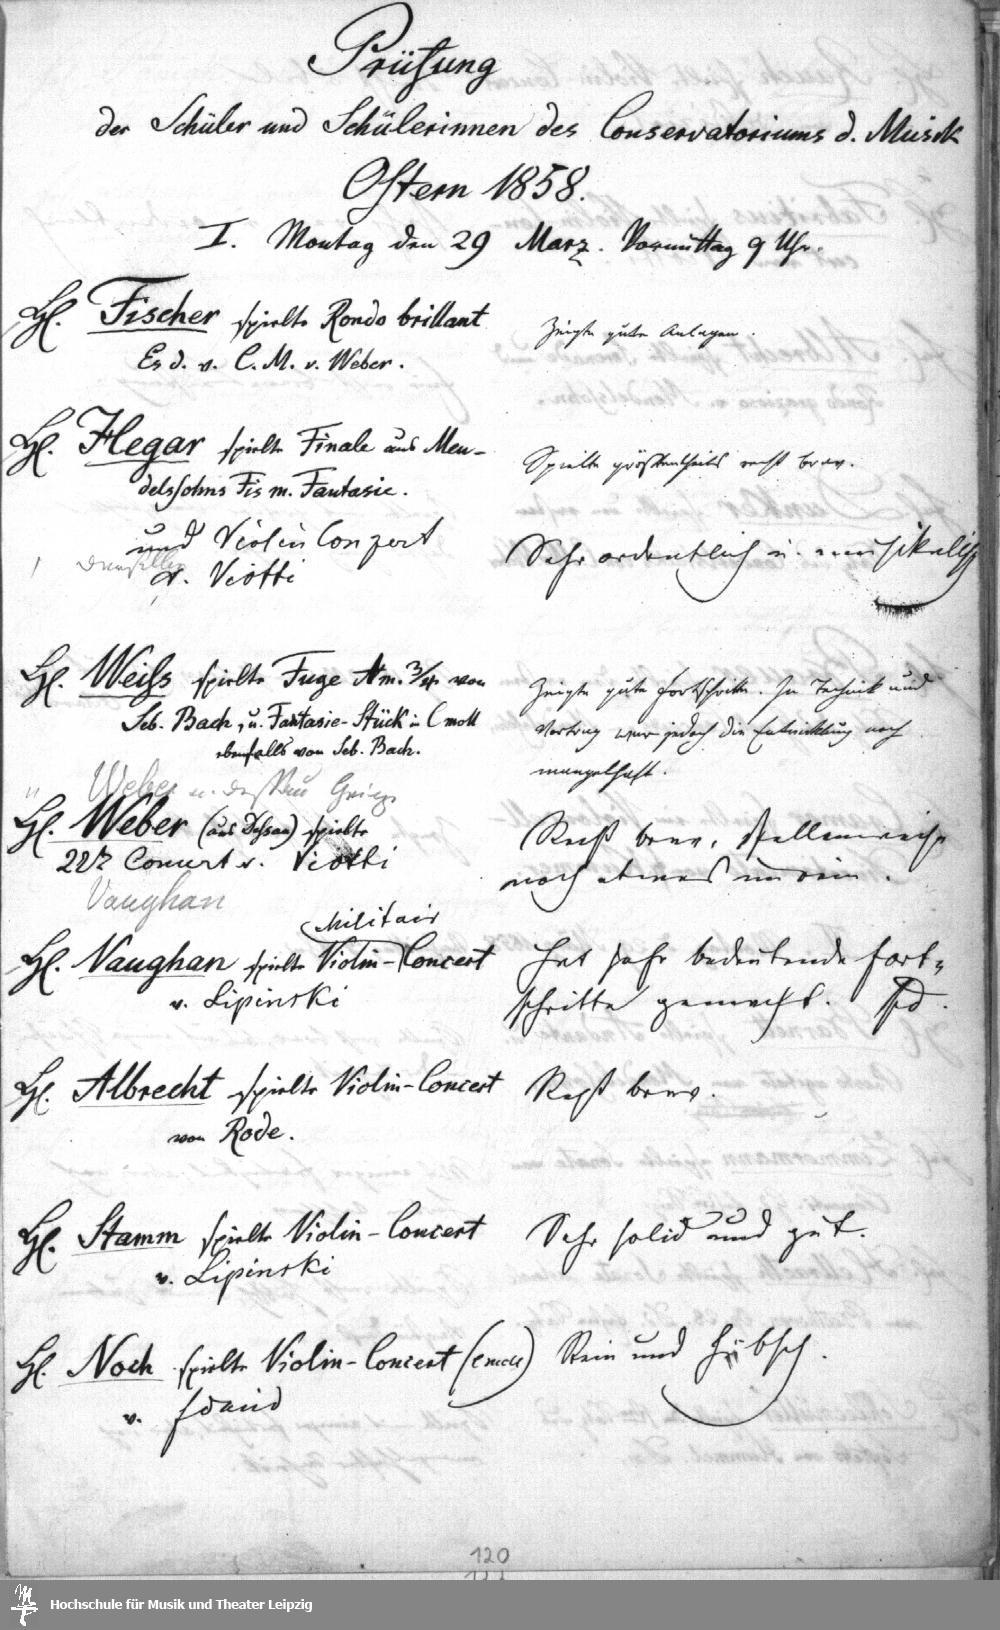 Prüfung
der Schüler und Schülerinnen des Conservatoriums d. Musik
Ostern 1858.
I. Montag den 29 März. Vormittag 9 Uhr.
H. Fischer spielte Rondo brillant Zeigte gute Anlagen.
Es d. v. C. M. v. Weber.
H. Hegar spielte Finale aus Men-
delssohns Fis m. Fantasie. Spielte größtentheils recht brav.
und Violin Conzert Sehr ordentlich u. musikalisch
Derselbe
v. Viotti
H. Weiſs spielte Fuge Am. 3/4 von Zeigte gute Fortschritte. In Technik und
Seb. Bach, u. Fantasie-Stück in C moll Vortrag war jedoch die Entwicklung noch
ebenfalls von Seb. Bach. mangelhaft.
Weber
H. Weber (aus Deſsau) spielte Recht brav, stellenweise
22t Concert v. Viotti noch etwas unrein.
Vaughan
Militair
H. Vaughan spielte Violin-Concert Hat sehr bedeutende Fort-
v. Lipinski schritte gemacht.
H. Albrecht spielte Violin-Concert Recht brav.
von Rode.
H. Stamm spielte Violin-Concert Sehr solid und gut.
v. Lipinski
H. Noch spielte Violin-Concert (emoll) Rein und hübsch.
v. David
120
Hochschule für Musik und Theater Leipzig